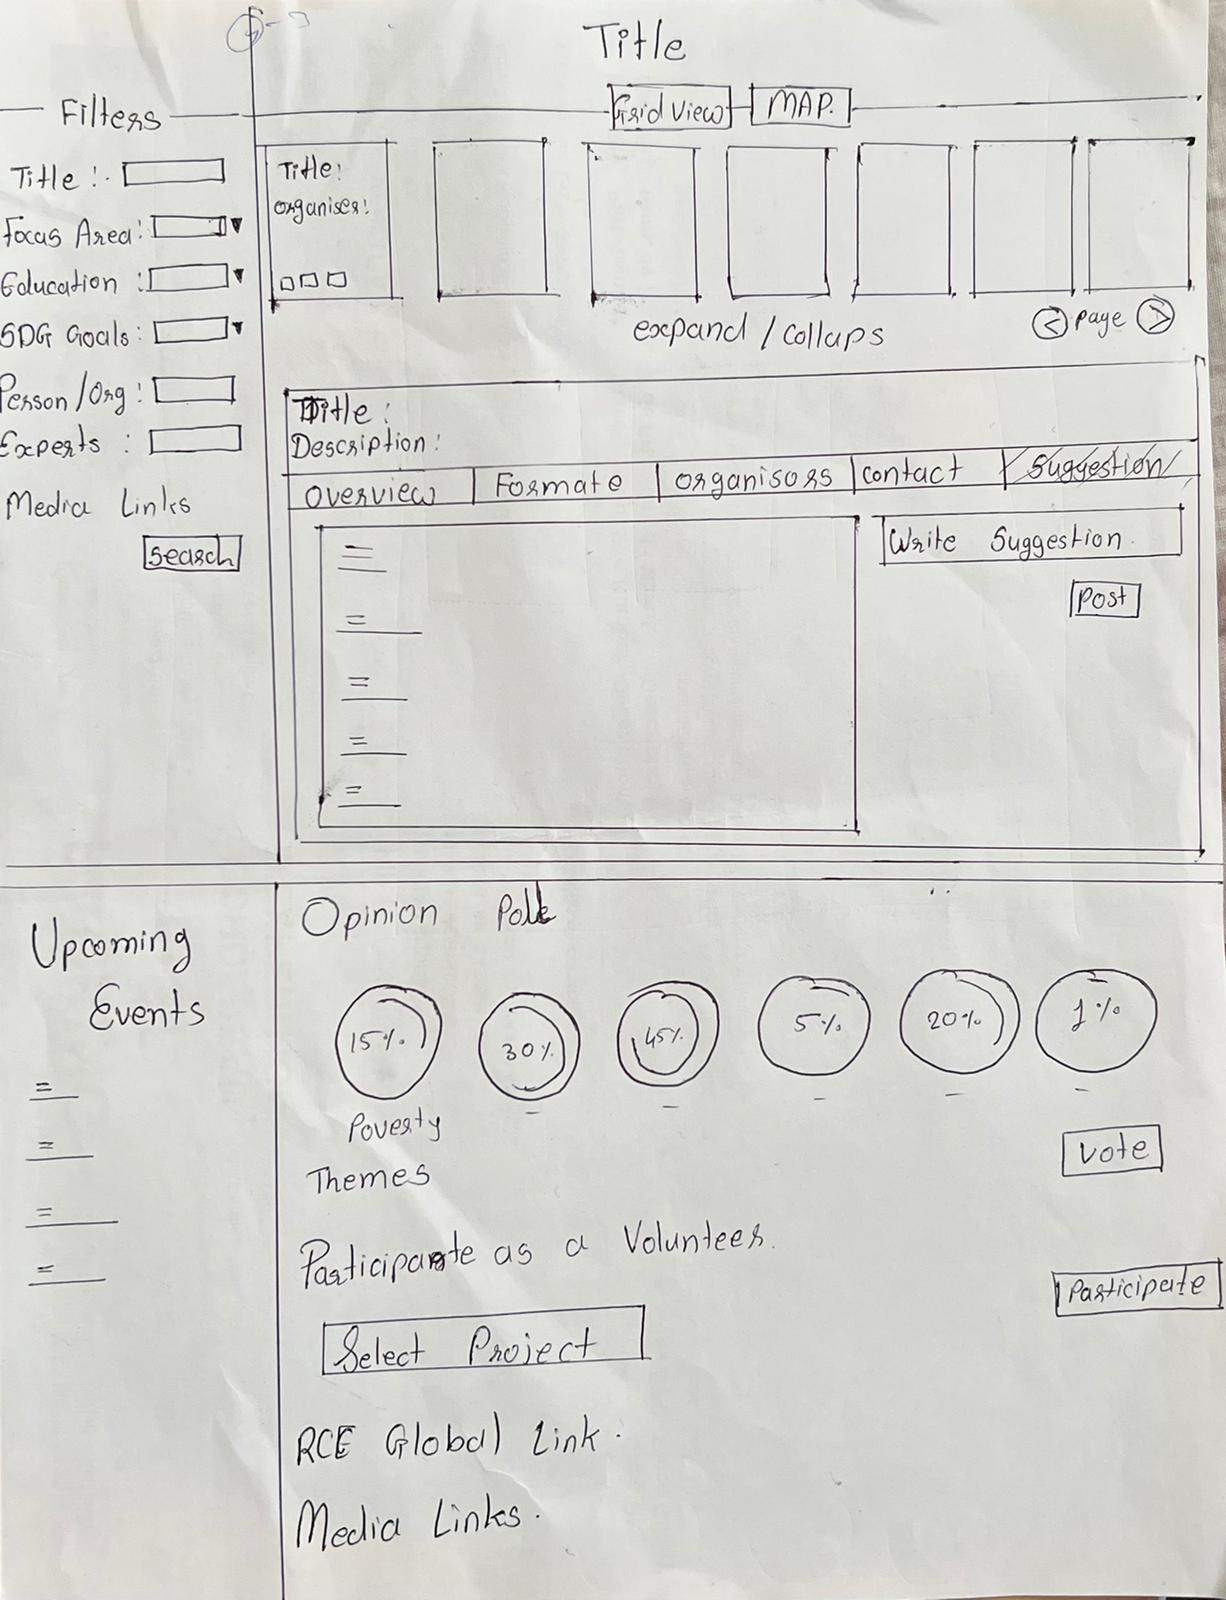 Title
Filters
Grid View
MAP.
Title :
Focus Area :
Education :
SDG Goals :
Person/Org :
Experts :
Media Links
Search
Title :
Organiser :
expand / collaps
< Page >
Title :
Description :
Overview
Formate
Organisors
Contact
Suggestion
Write Suggestion.
Post
Upcoming
Events
Opinion Poll
15%.
30%.
45%.
5%.
20%.
1%.
Poverty
Themes
Vote
Participate as a Volunteer.
Participate
Select Project
RCE Global Link.
Media Links.